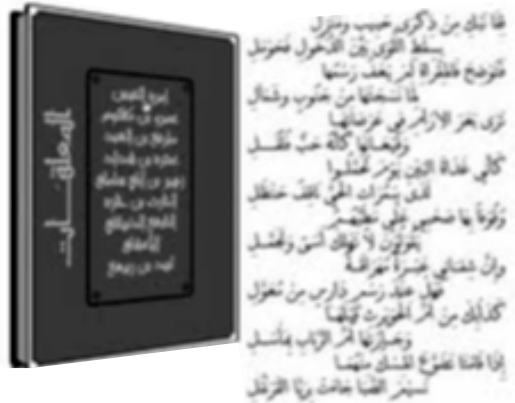 المعلقات
امرؤ القيس
عمرو بن كلثوم
طرفة بن العبد
عنترة بن شداد
زهير بن أبي سلمى
الحارث بن حلزة
النابغة الذبياني
الأعشى
لبيد بن ربيعة
قفا نبك من ذكرى حبيب ومنزل
بسقط اللوى بين الدخول فحومل
فتوضح فالمقراة لم يعف رسمها
لما نسجتها من جنوب وشمأل
ترى بعر الآرام في عرصاتها
وقيعانها كأنه حب فلفل
كأني غداة البين يوم تحملوا
لدى سمرات الحي ناقف حنظل
وقوفا بها صحبي علي مطيهم
يقولون لا تهلك أسى وتجمل
وإن شفائي عبرة مهراقة
فهل عند رسم دارس من معول
كدأبك من أم الحويرث قبلها
وجارتها أم الرباب بمأسل
إذا قامتا تضوع المسك منهما
نسيم الصبا جاءت بريا القرنفل